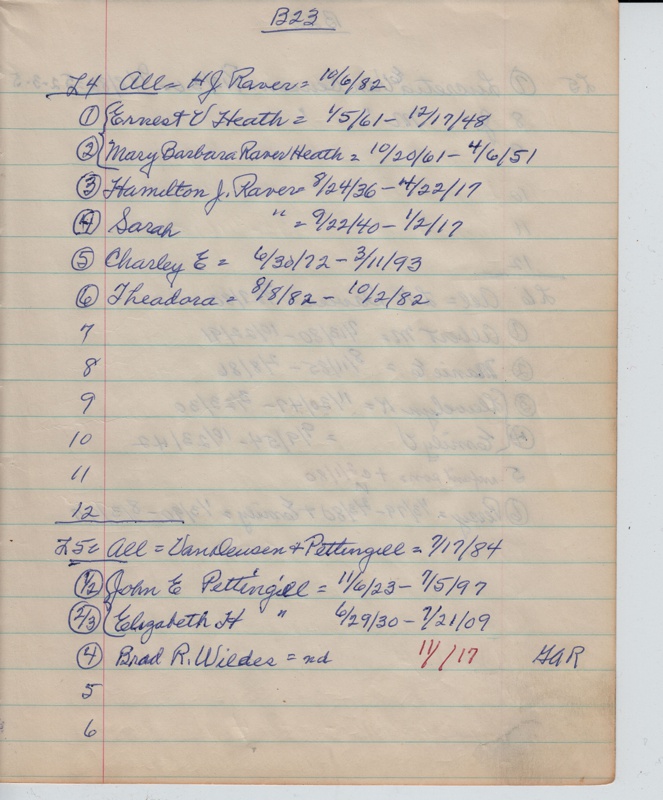 B23
L4 All = H J Raver = 10/6/82
1 Ernest V Heath = 1/5/61 - 12/17/48
2 Mary Barbara Raver Heath = 10/20/61 - 4/6/51
3 Hamilton J. Raver = 8/24/36 - 4/22/17
4 Sarah " = 9/22/40 - 1/2/17
5 Charley E = 6/30/72 - 3/11/93
6 Theadora = 8/8/82 - 10/2/82
7
8
9
10
11
12
All = VanDeusen & Pettingill = 7/17/84
1/2 John E Pettingill = 11/6/23 - 7/5/97
2/3 Elizabeth H " 6/29/30 - 7/21/09
4 Brad R. Wildes = nd 11/17 GAR
5
6